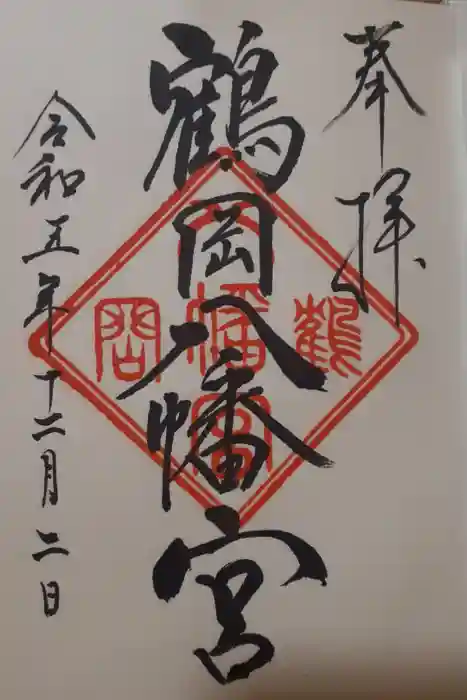 奉拝
鶴岡八幡宮
令和五年十二月二日
鶴
岡
八
幡
宮